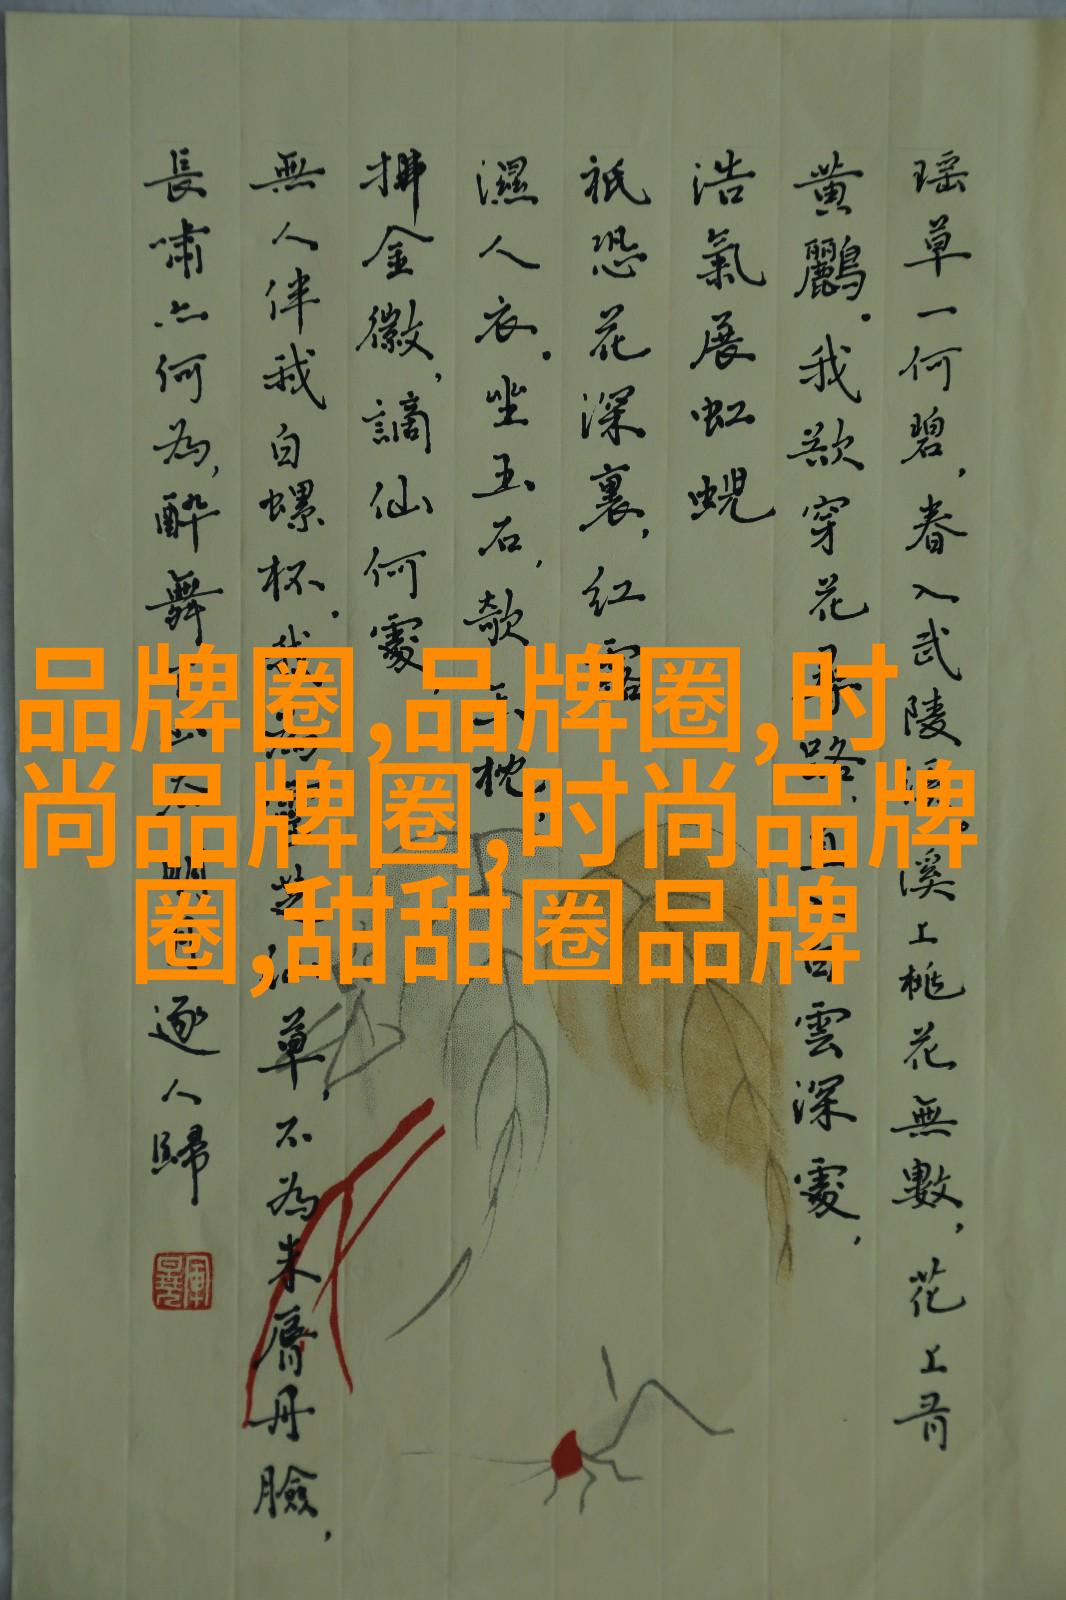 品牌圈,品牌圈,时
尚品牌圈,时尚品牌
圈,甜甜圈品牌
瑶草一何碧，春入武陵溪。溪上桃花無數，花上有
黄鸝。我欲穿花路，白雲深處，
浩氣展虹蜺
祇恐花深裏，紅露
濕人衣。坐玉石，欹玉枕，
拂金徽，謫仙何處，
無人伴我白螺杯。我為芝仙草，不為朱脣丹臉，
長嘯亦何為，醉舞下山去明月逐人歸